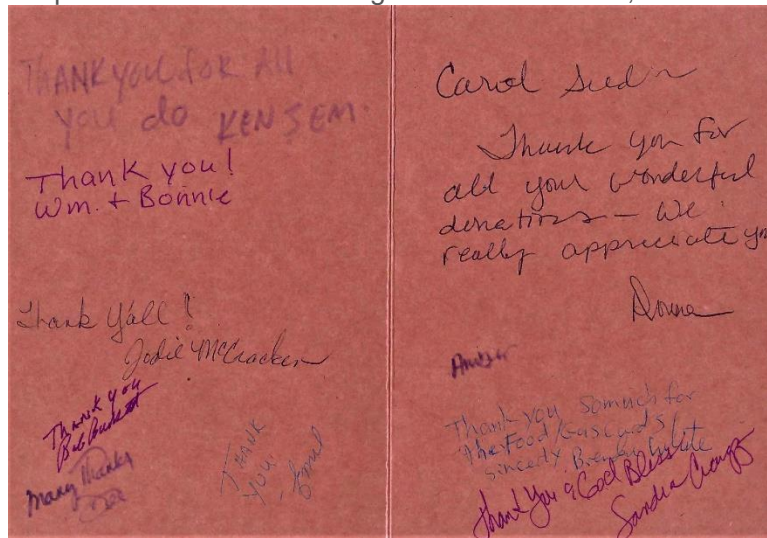 THANK YOU for All
you do KEN SEM.
Thank you!
Wm. + Bonnie
Thank Y'all!
Jodie McCracken
Thank you
Bob
Many Thanks
THANK
YOU
Carol
Thank you for
all your wonderful
donations - We
really appreciate
Donna
Amber
Thank you somuch for
the Food/
sincerly
Thank You & God Bless!
Sandra